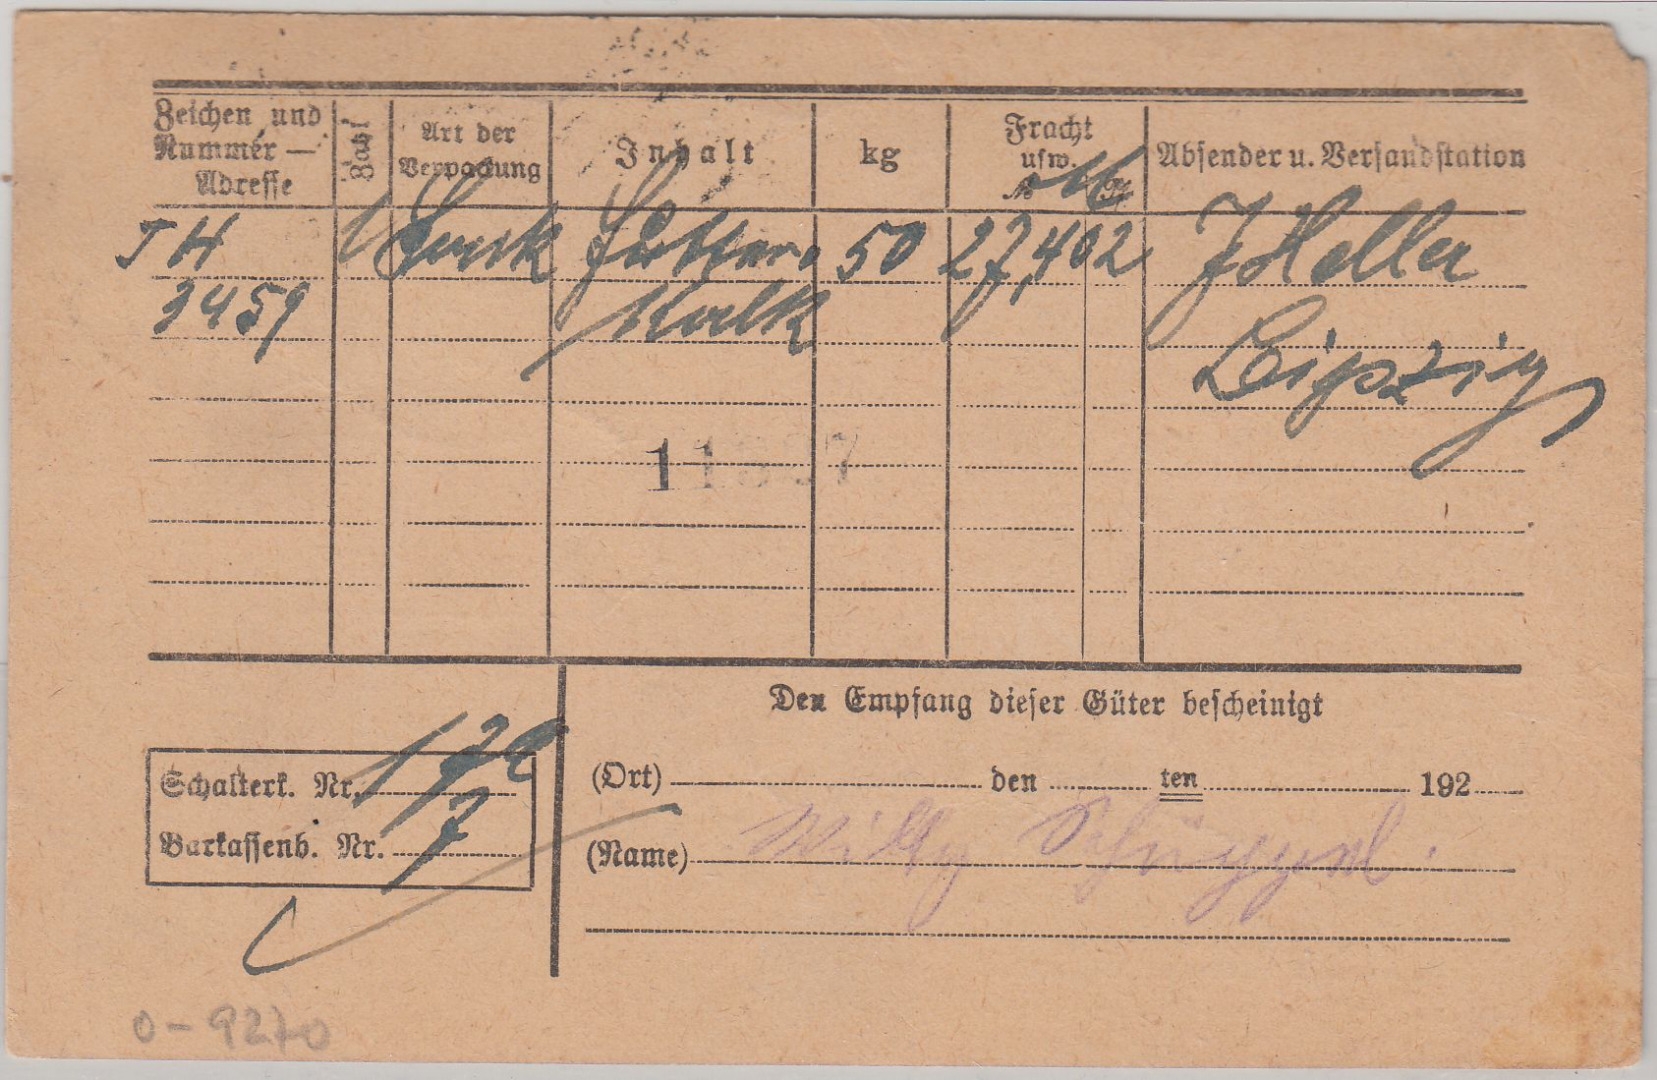 Zeichen und Nummer — Adresse
Zahl
Art der Verpackung
Inhalt
kg
Fracht usw.
M Pf
Absender u. Versandstation
JH 1 Sack Futter- 50 27,402 J Heller
3459 Kalk
Leipzig
Den Empfang dieser Güter bescheinigt
Schalterk. Nr. 170
Barkassenb. Nr. 7
(Ort) den ten 192
(Name) Willy
0-9270